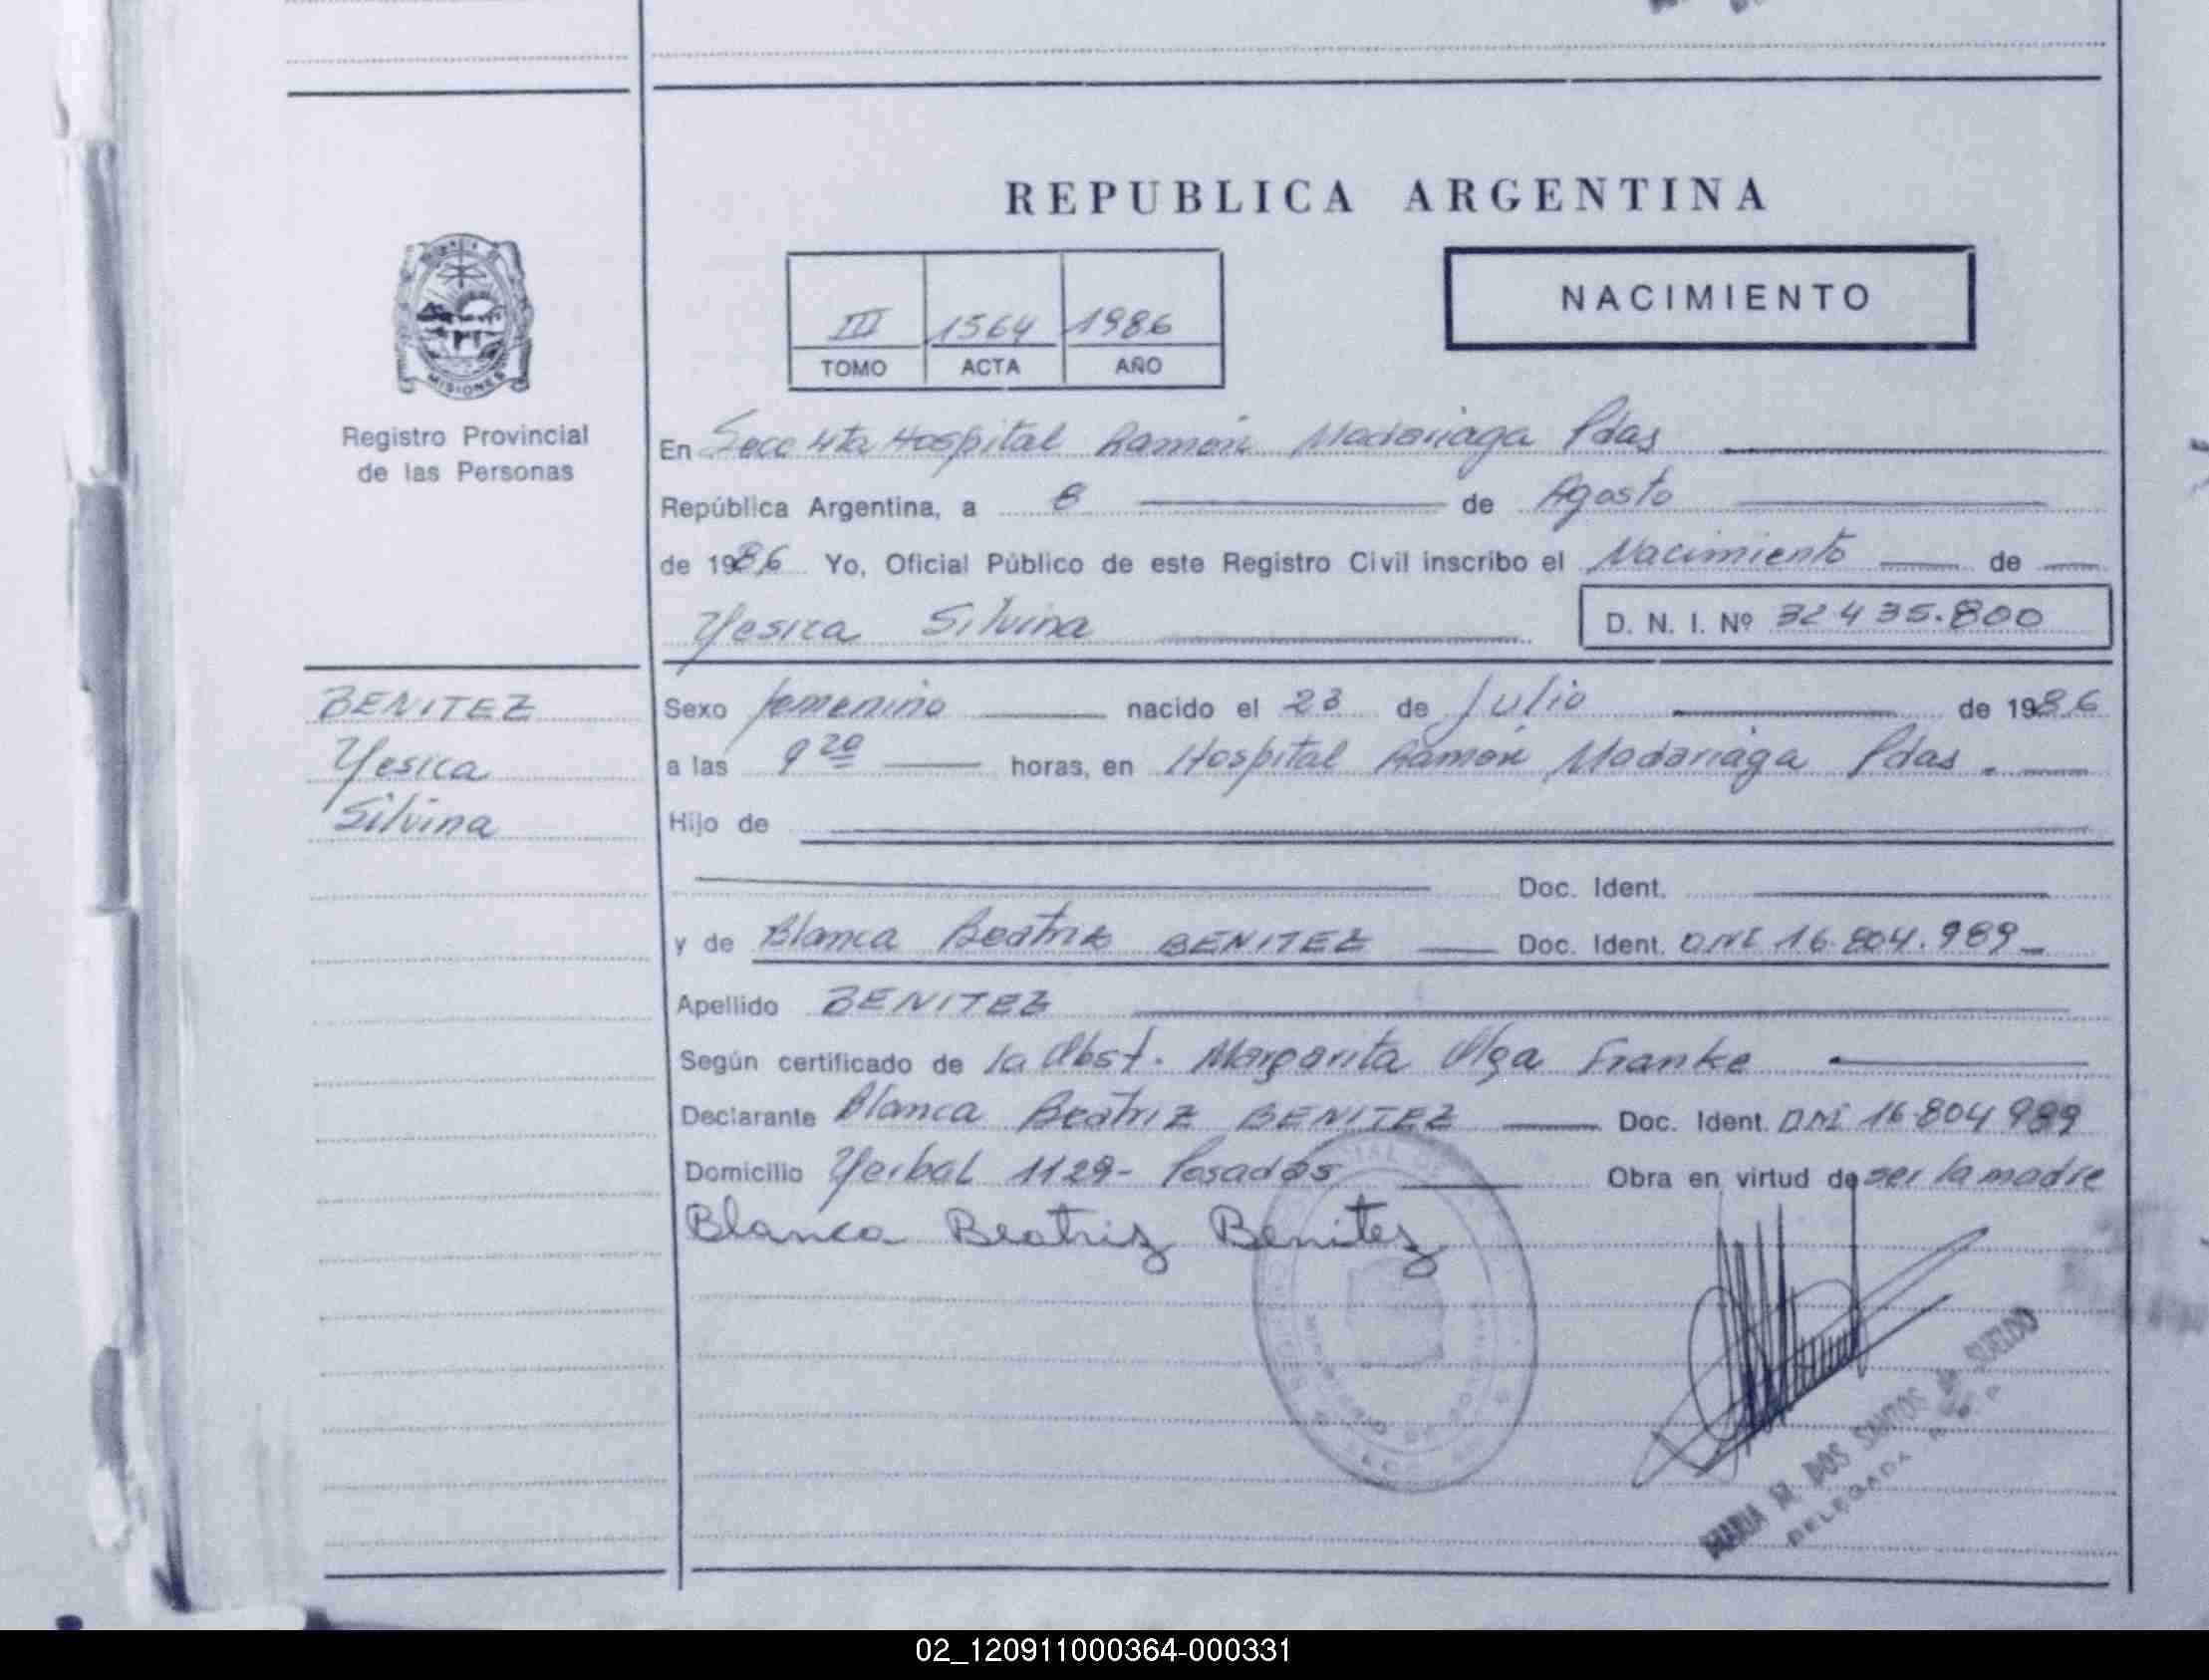 REPUBLICA ARGENTINA
MISIONES
Registro Provincial
de las Personas
III 1564 1986
TOMO ACTA AÑO
NACIMIENTO
En Secc 4ta Hospital Ramón Madariaga Pdas
República Argentina, a 8 de Agosto
de 1986 Yo, Oficial Público de este Registro Civil inscribo el Nacimiento de
Yesica Silvina D. N. I. Nº 32435.800
BENITEZ
Yesica
Silvina
Sexo femenino nacido el 23 de Julio de 1986
a las 9 20 horas, en Hospital Ramón Madariaga Pdas.
Hijo de
Doc. Ident.
y de Blanca Beatriz BENITEZ Doc. Ident. DNI 16.804.989
Apellido BENITEZ
Según certificado de la Obst. Margarita Olga Franke
Declarante Blanca Beatriz BENITEZ Doc. Ident. DNI 16.804989
Domicilio Yerbal 1129 - Posadas Obra en virtud de ser la madre
Blanca Beatriz Benitez
MARIA DOS SANTOS DE SUELDO
DELEGADA
02_120911000364-000331